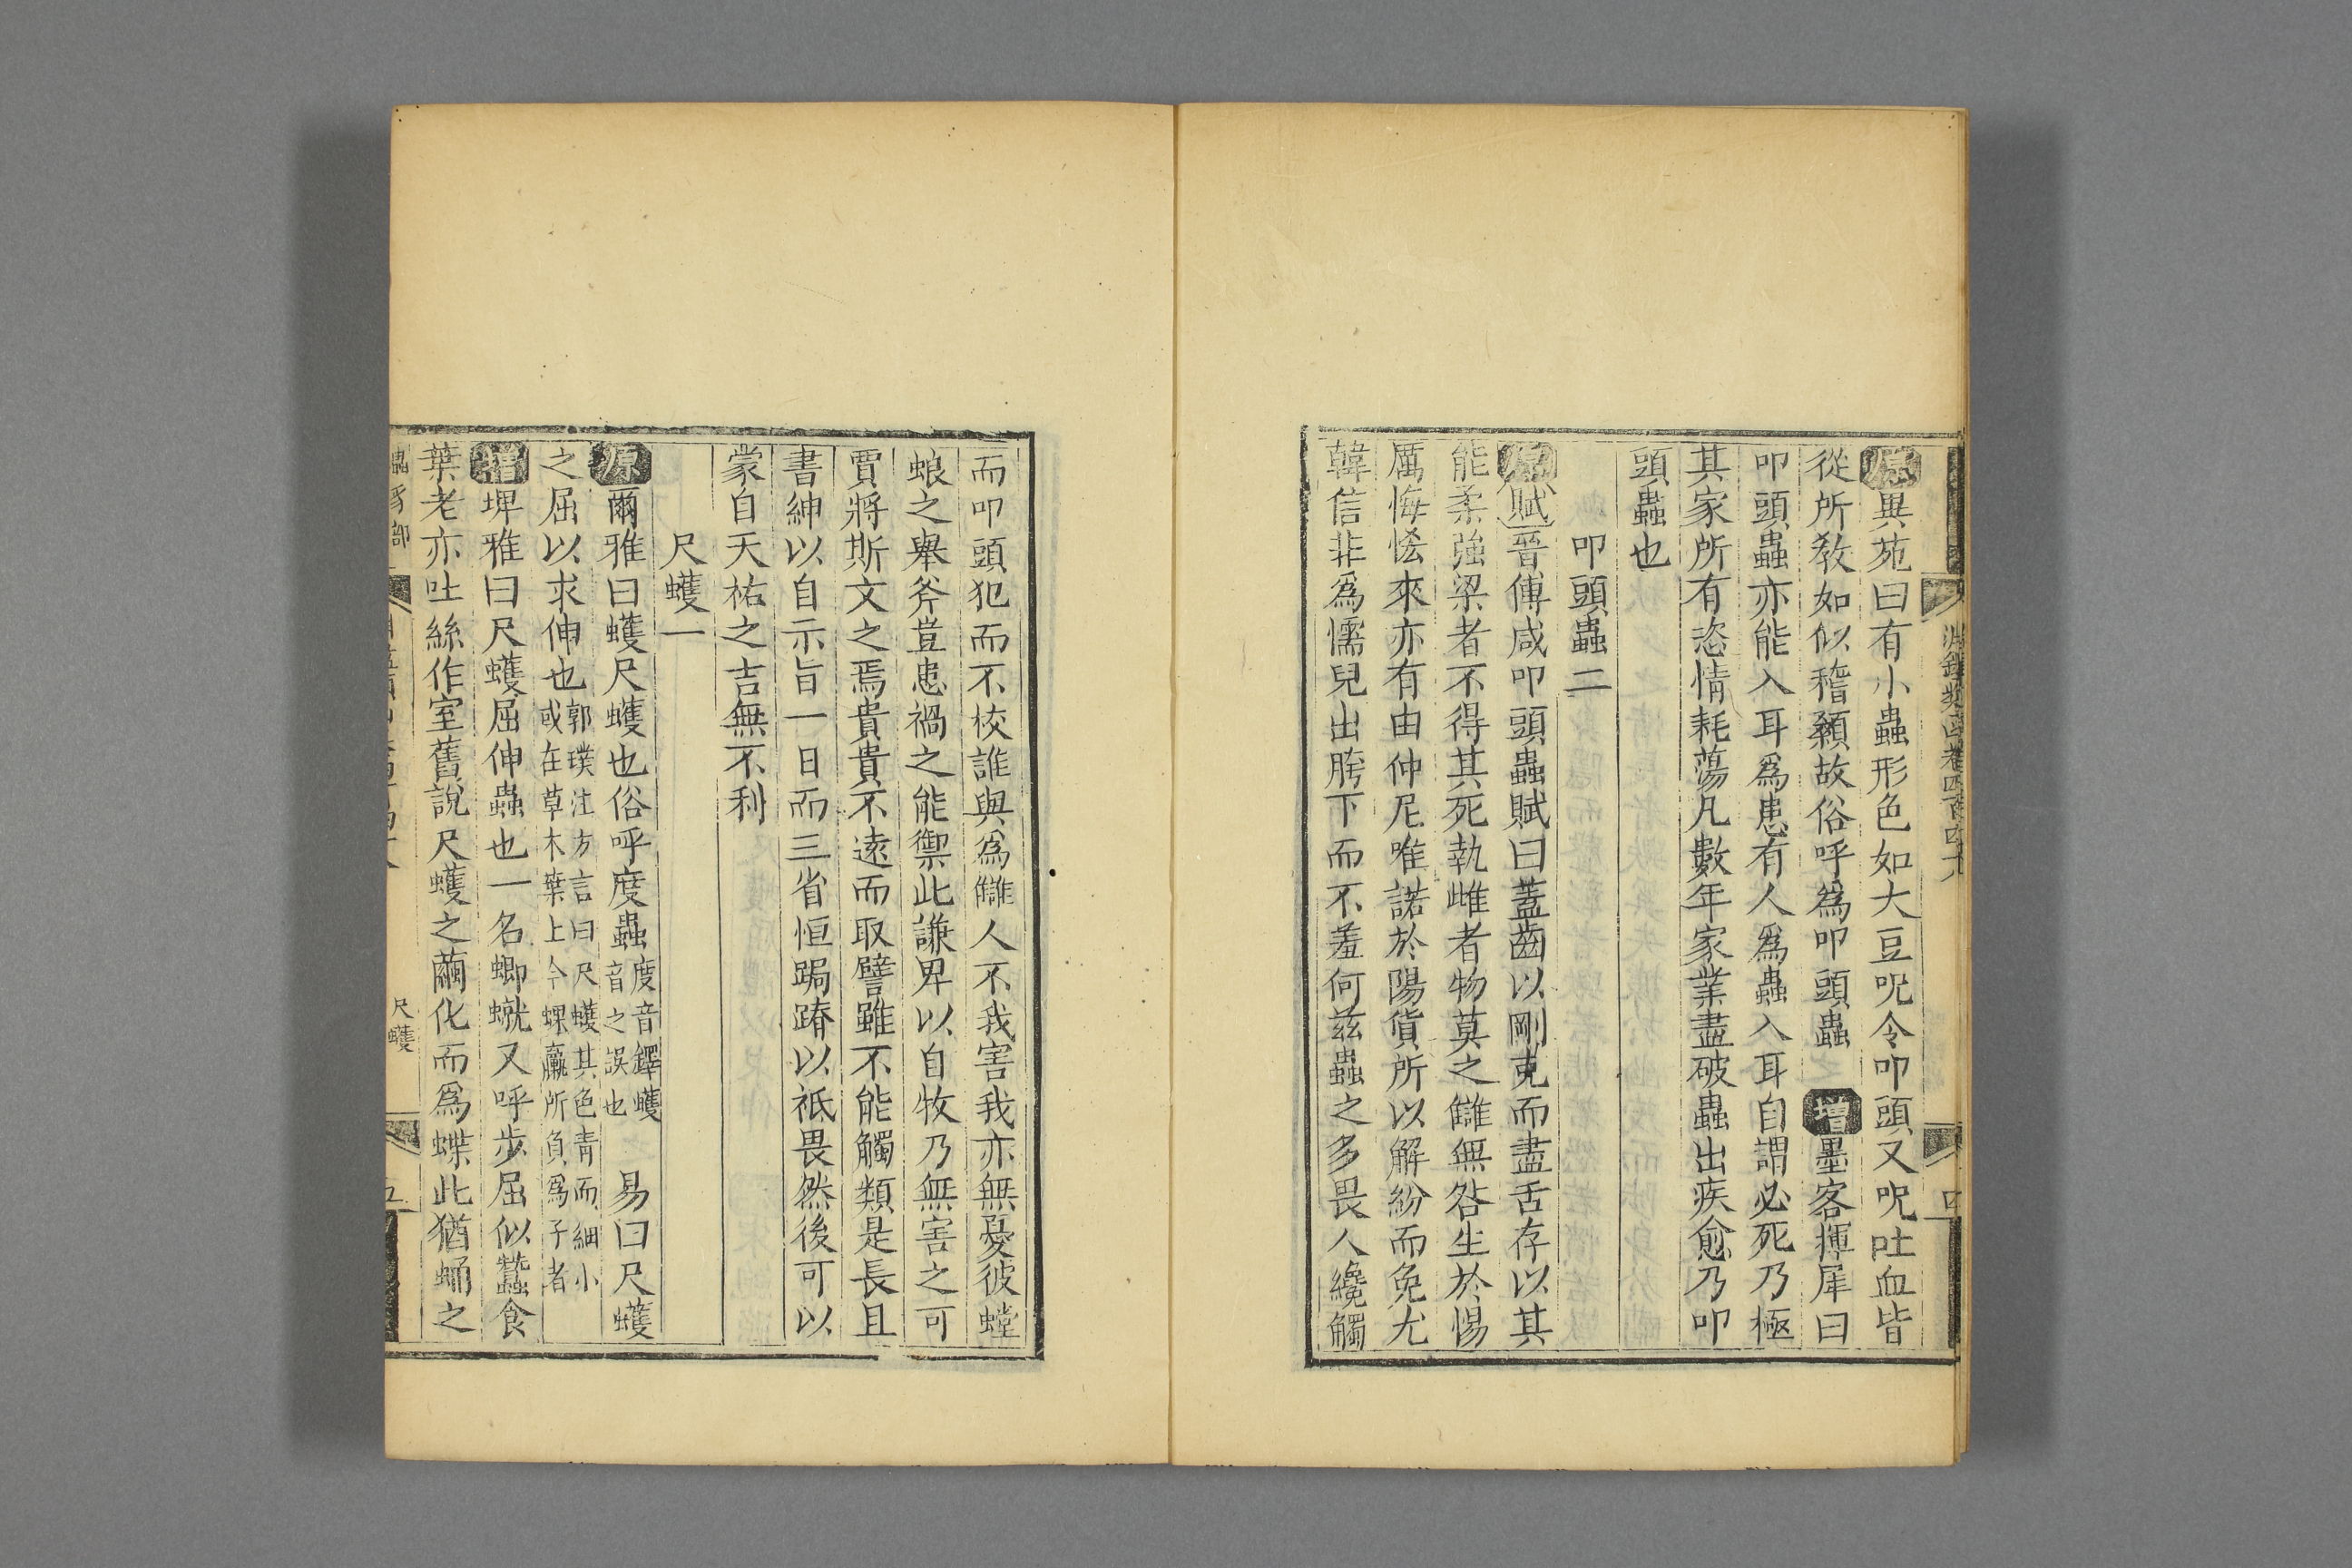 淵鑑類函卷四百四十九
四
原異苑曰有小蟲形色如大豆呪令叩頭又呪吐血皆
從所教如似稽顙故俗呼爲叩頭蟲 增墨客揮犀曰
叩頭蟲亦能入耳爲患有人爲蟲入耳自謂必死乃極
其家所有恣情耗蕩凡數年家業盡破蟲出疾愈乃叩
頭蟲也
叩頭蟲二
原賦晉傅咸叩頭蟲賦曰蓋齒以剛克而盡舌存以其
能柔強梁者不得其死執雌者物莫之讎無咎生於惕
厲悔悋來亦有由仲尼唯諾於陽貨所以解紛而免尤
韓信非爲懦兒出胯下而不羞何茲蟲之多畏人纔觸
而叩頭犯而不校誰與爲讎人不我害我亦無憂彼螳
蜋之舉斧豈患禍之能禦此謙卑以自牧乃無害之可
賈將斯文之焉貴貴不遠而取譬雖不能觸類是長且
書紳以自示旨一日而三省恒跼蹐以祗畏然後可以
蒙自天祐之吉無不利
尺蠖一
原爾雅曰蠖尺蠖也俗呼度蟲度音鐸蠖音之誤也 易曰尺蠖
之屈以求伸也郭璞注方言曰尺蠖其色青而細小或在草木葉上今蜾蠃所負爲子者
增埤雅曰尺蠖屈伸蟲也一名蝍蟩又呼步屈似蠶食
葉老亦吐絲作室舊說尺蠖之繭化而爲蝶此猶蛹之
蟲豸部
尺蠖
五